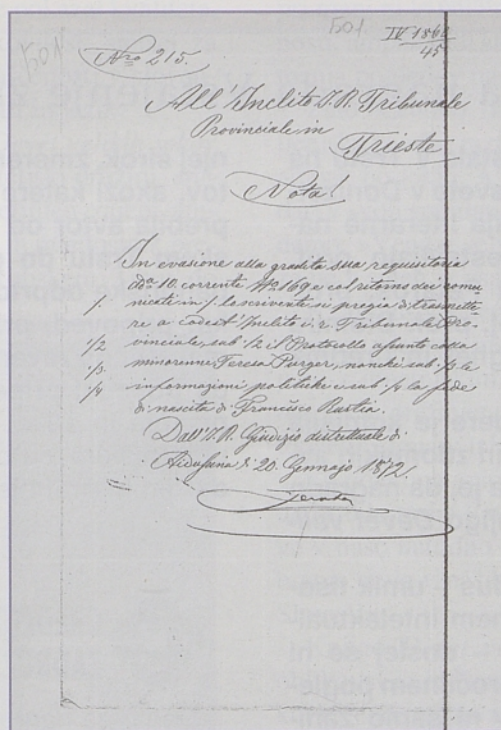 501
501
IV 1860
45
Nro 215.
All'Inclito I. R. Tribunale
Provinciale in
Trieste
Nota!
In evasione alla gradita sua requisitoria
ddo 10. corrente No 169 e col ritorno dei comu
nicate in /. la scrivente si pregia di trasmette-
/. re a codest'Inclito i. r. Tribunale Pro-
/2 vinciale, sub /2 il Protocollo assunto colla
/3. minorenne Teresa Purger, nonché sub /3 le
/4 informazioni politiche e sub /4 la fede
di nascita di Francesco Rustia.
Dall'I. R. Giudizio distrettuale di
Aidussina li 20. Gennajo 1872.